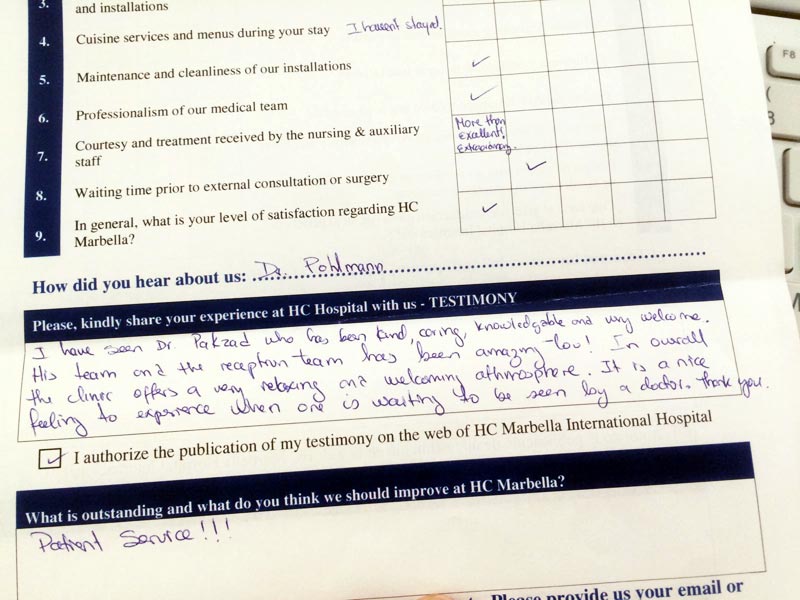 3.
and installations
4. Cuisine services and menus during your stay I havent stayed.
5. Maintenance and cleanliness of our installations
6. Professionalism of our medical team
7. Courtesy and treatment received by the nursing & auxiliary
staff
More than
excellent,
extraordinary.
8. Waiting time prior to external consultation or surgery
9. In general, what is your level of satisfaction regarding HC
Marbella?
How did you hear about us: Dr. Pohlmann
Please, kindly share your experience at HC Hospital with us - TESTIMONY
I have seen Dr. Pakzad who has been kind, caring, knowledgable and very welcome.
His team and the reception team has been amazing too! In overall
the clinic offers a very relaxing and welcoming athmosphere. It is a nice
feeling to experience when one is waiting to be seen by a doctor. Thank you.
I authorize the publication of my testimony on the web of HC Marbella International Hospital
What is outstanding and what do you think we should improve at HC Marbella?
Patient Service!!!
Please provide us your email or
F8